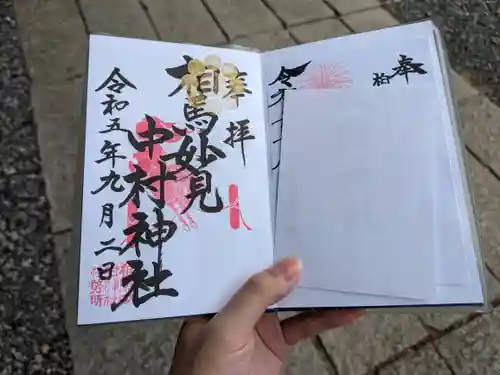 奉拝
相馬妙見
中村神社
令和五年九月二日
奉
拝
令